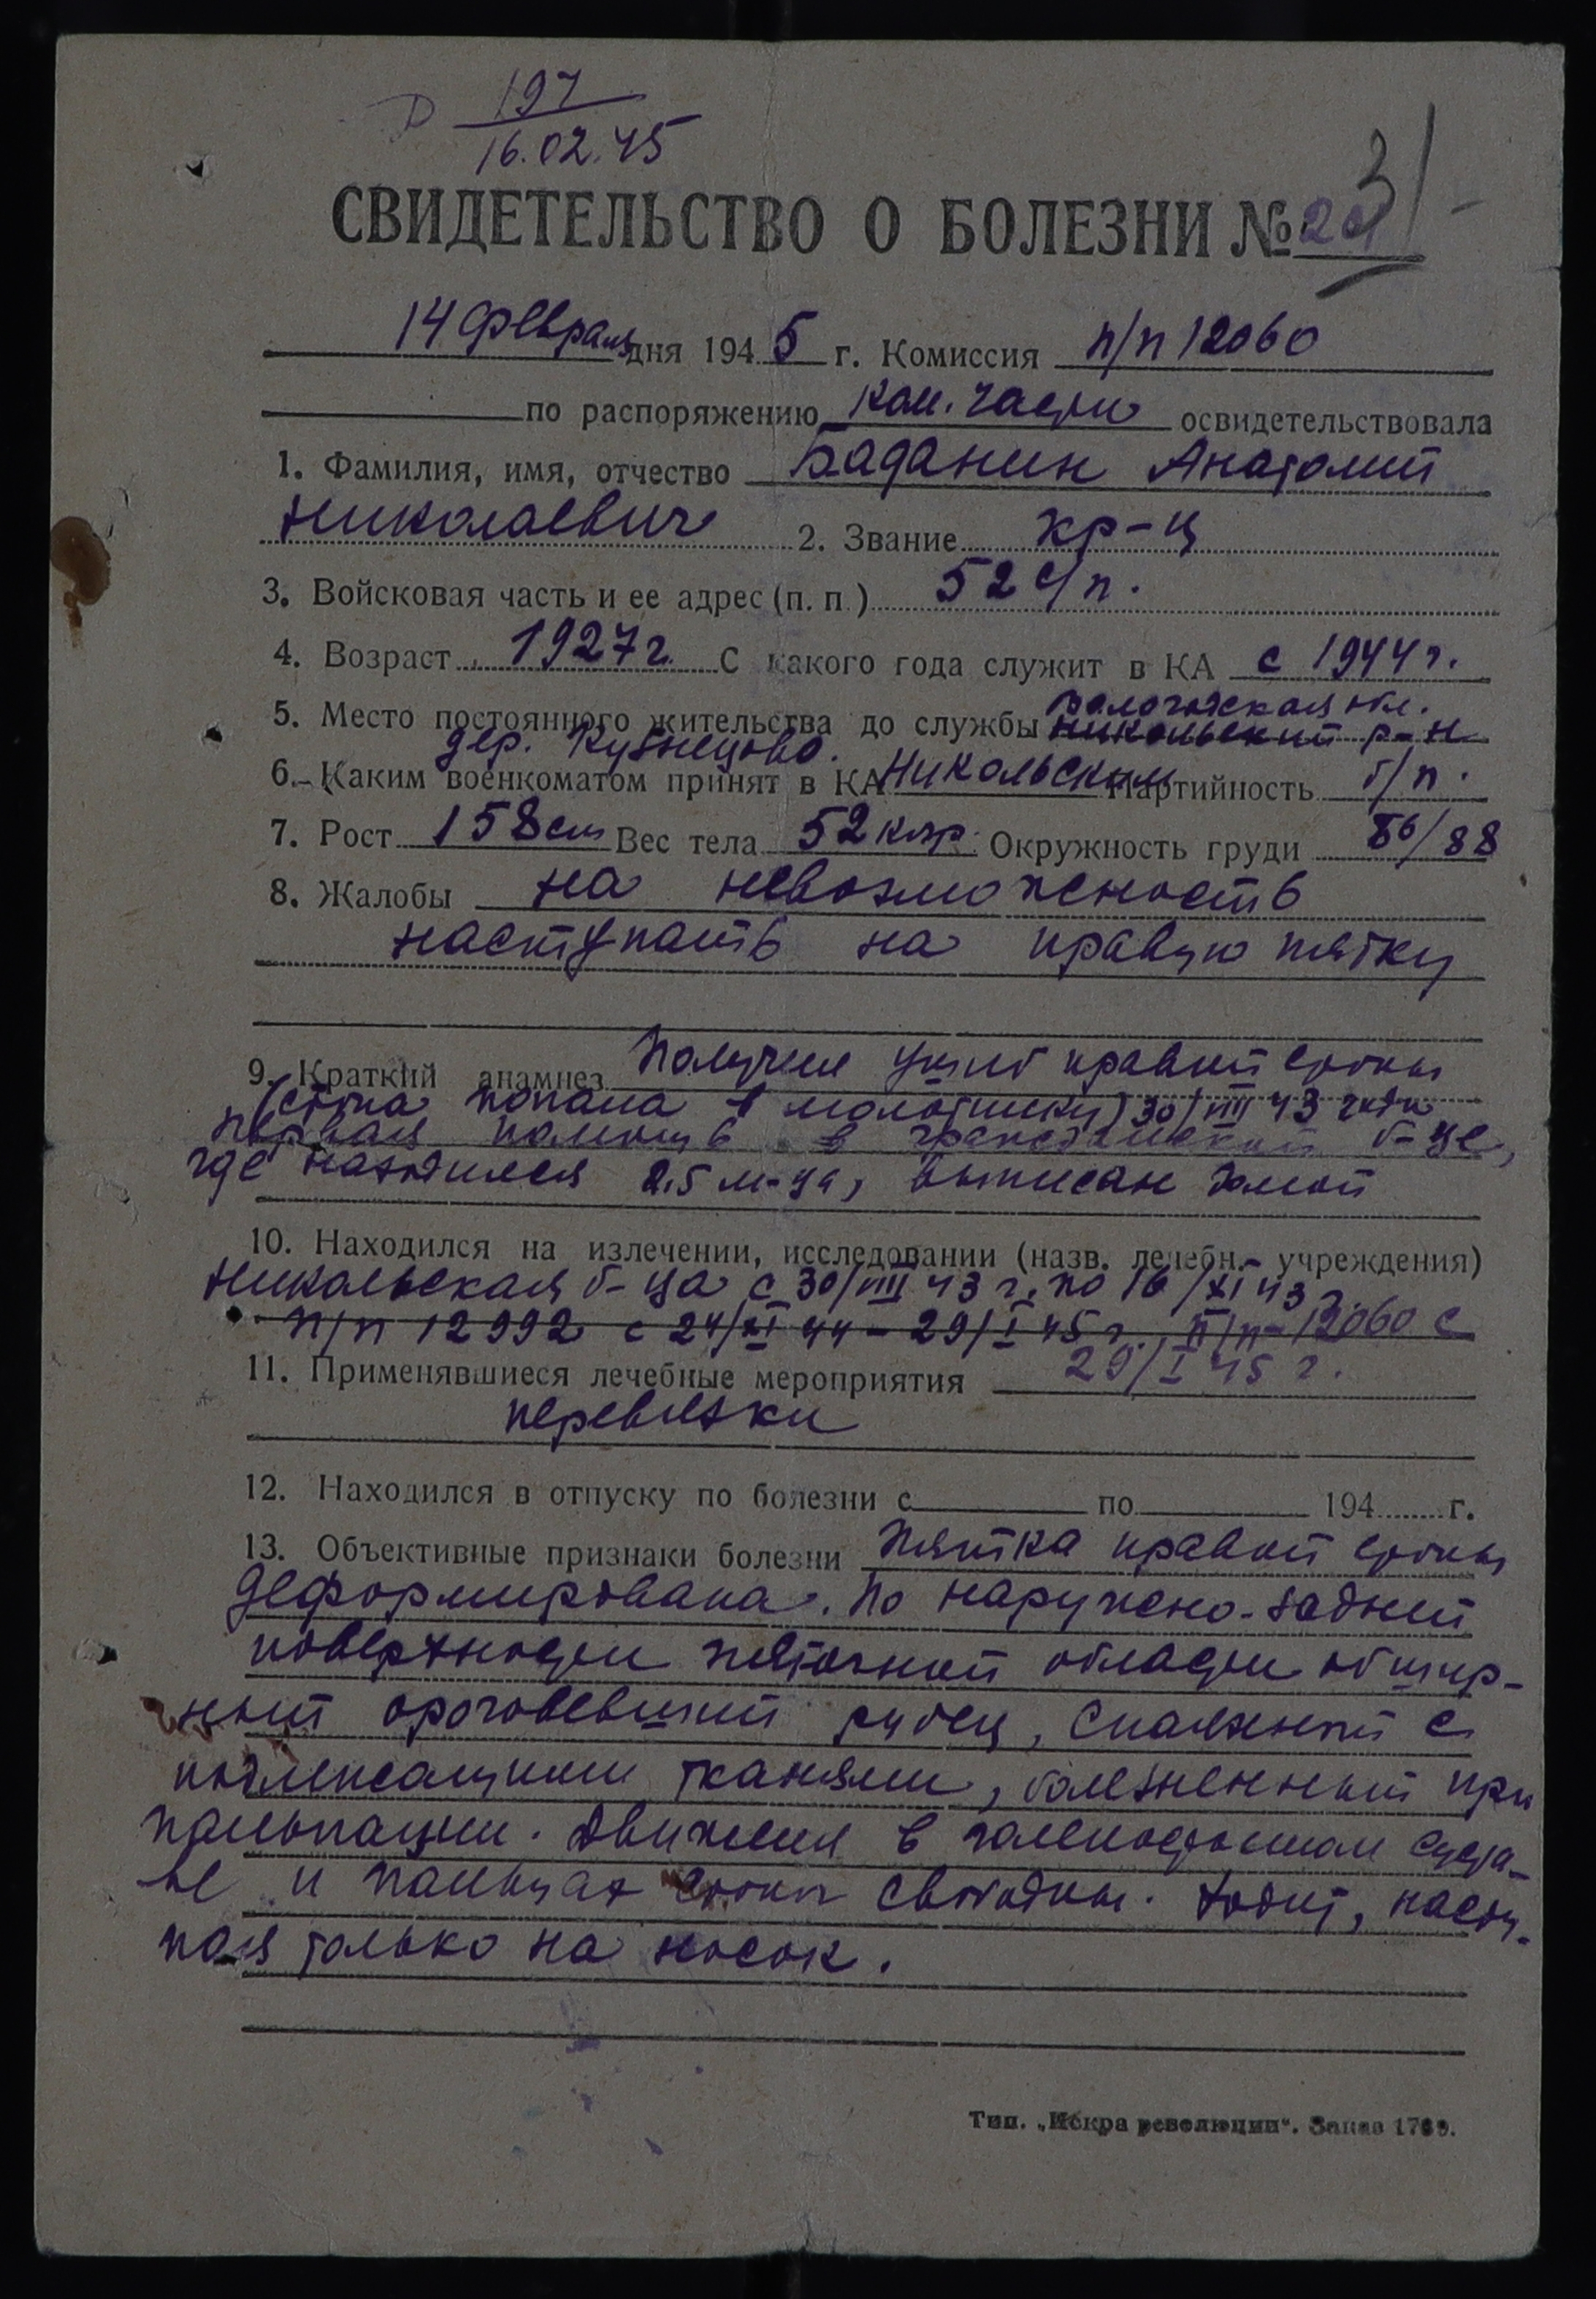 197
16.02.45
СВИДЕТЕЛЬСТВО О БОЛЕЗНИ №
14 февраля дня 1945 г. Комиссия п/п 12060
по распоряжению ком. части освидетельствовала
1. Фамилия, имя, отчество Баданин Анатолий
Николаевич 2. Звание кр-ц
3. Войсковая часть и ее адрес (п. п.) 52 с/п.
4. Возраст 1927 г. С какого года служит в КА с 1944 г.
5. Место постоянного жительства до службы Вологодская обл. Никольский р-н
дер. Кузнецово.
6. Каким военкоматом принят в КА Никольским Партийность б/п.
7. Рост 158 см Вес тела 52 клгр. Окружность груди 86/88
8. Жалобы на невозможность
наступать на правую пятку
9. Краткий анамнез Получил ушиб правой стопы
(стопа попала в молотилку) 30/VIII 43 года
первая помощь в гражданской б-це,
где находился 2,5 м-ца, выписан домой
10. Находился на излечении, исследовании (назв. лечебн. учреждения)
Никольская б-ца с 30/VIII 43 г. по 16/XI 43 г.
п/п 12992 с 24/XI 44 - 29/I 45 г., п/п - 12060 с
11. Применявшиеся лечебные мероприятия 29/I 45 г.
перевязки
12. Находился в отпуску по болезни с по 194 г.
13. Объективные признаки болезни Пятка правой стопы
деформирована. По наружно-задней
поверхности пяточной области обшир-
ный ороговевший рубец, спаянный с
подлежащими тканями, болезненный при
пальпации. Движения в голеностопном суста-
ве и пальцах стопы свободны. Ходит, насту-
пая только на носок.
Тип. „Искра революции“. Заказ 1769.